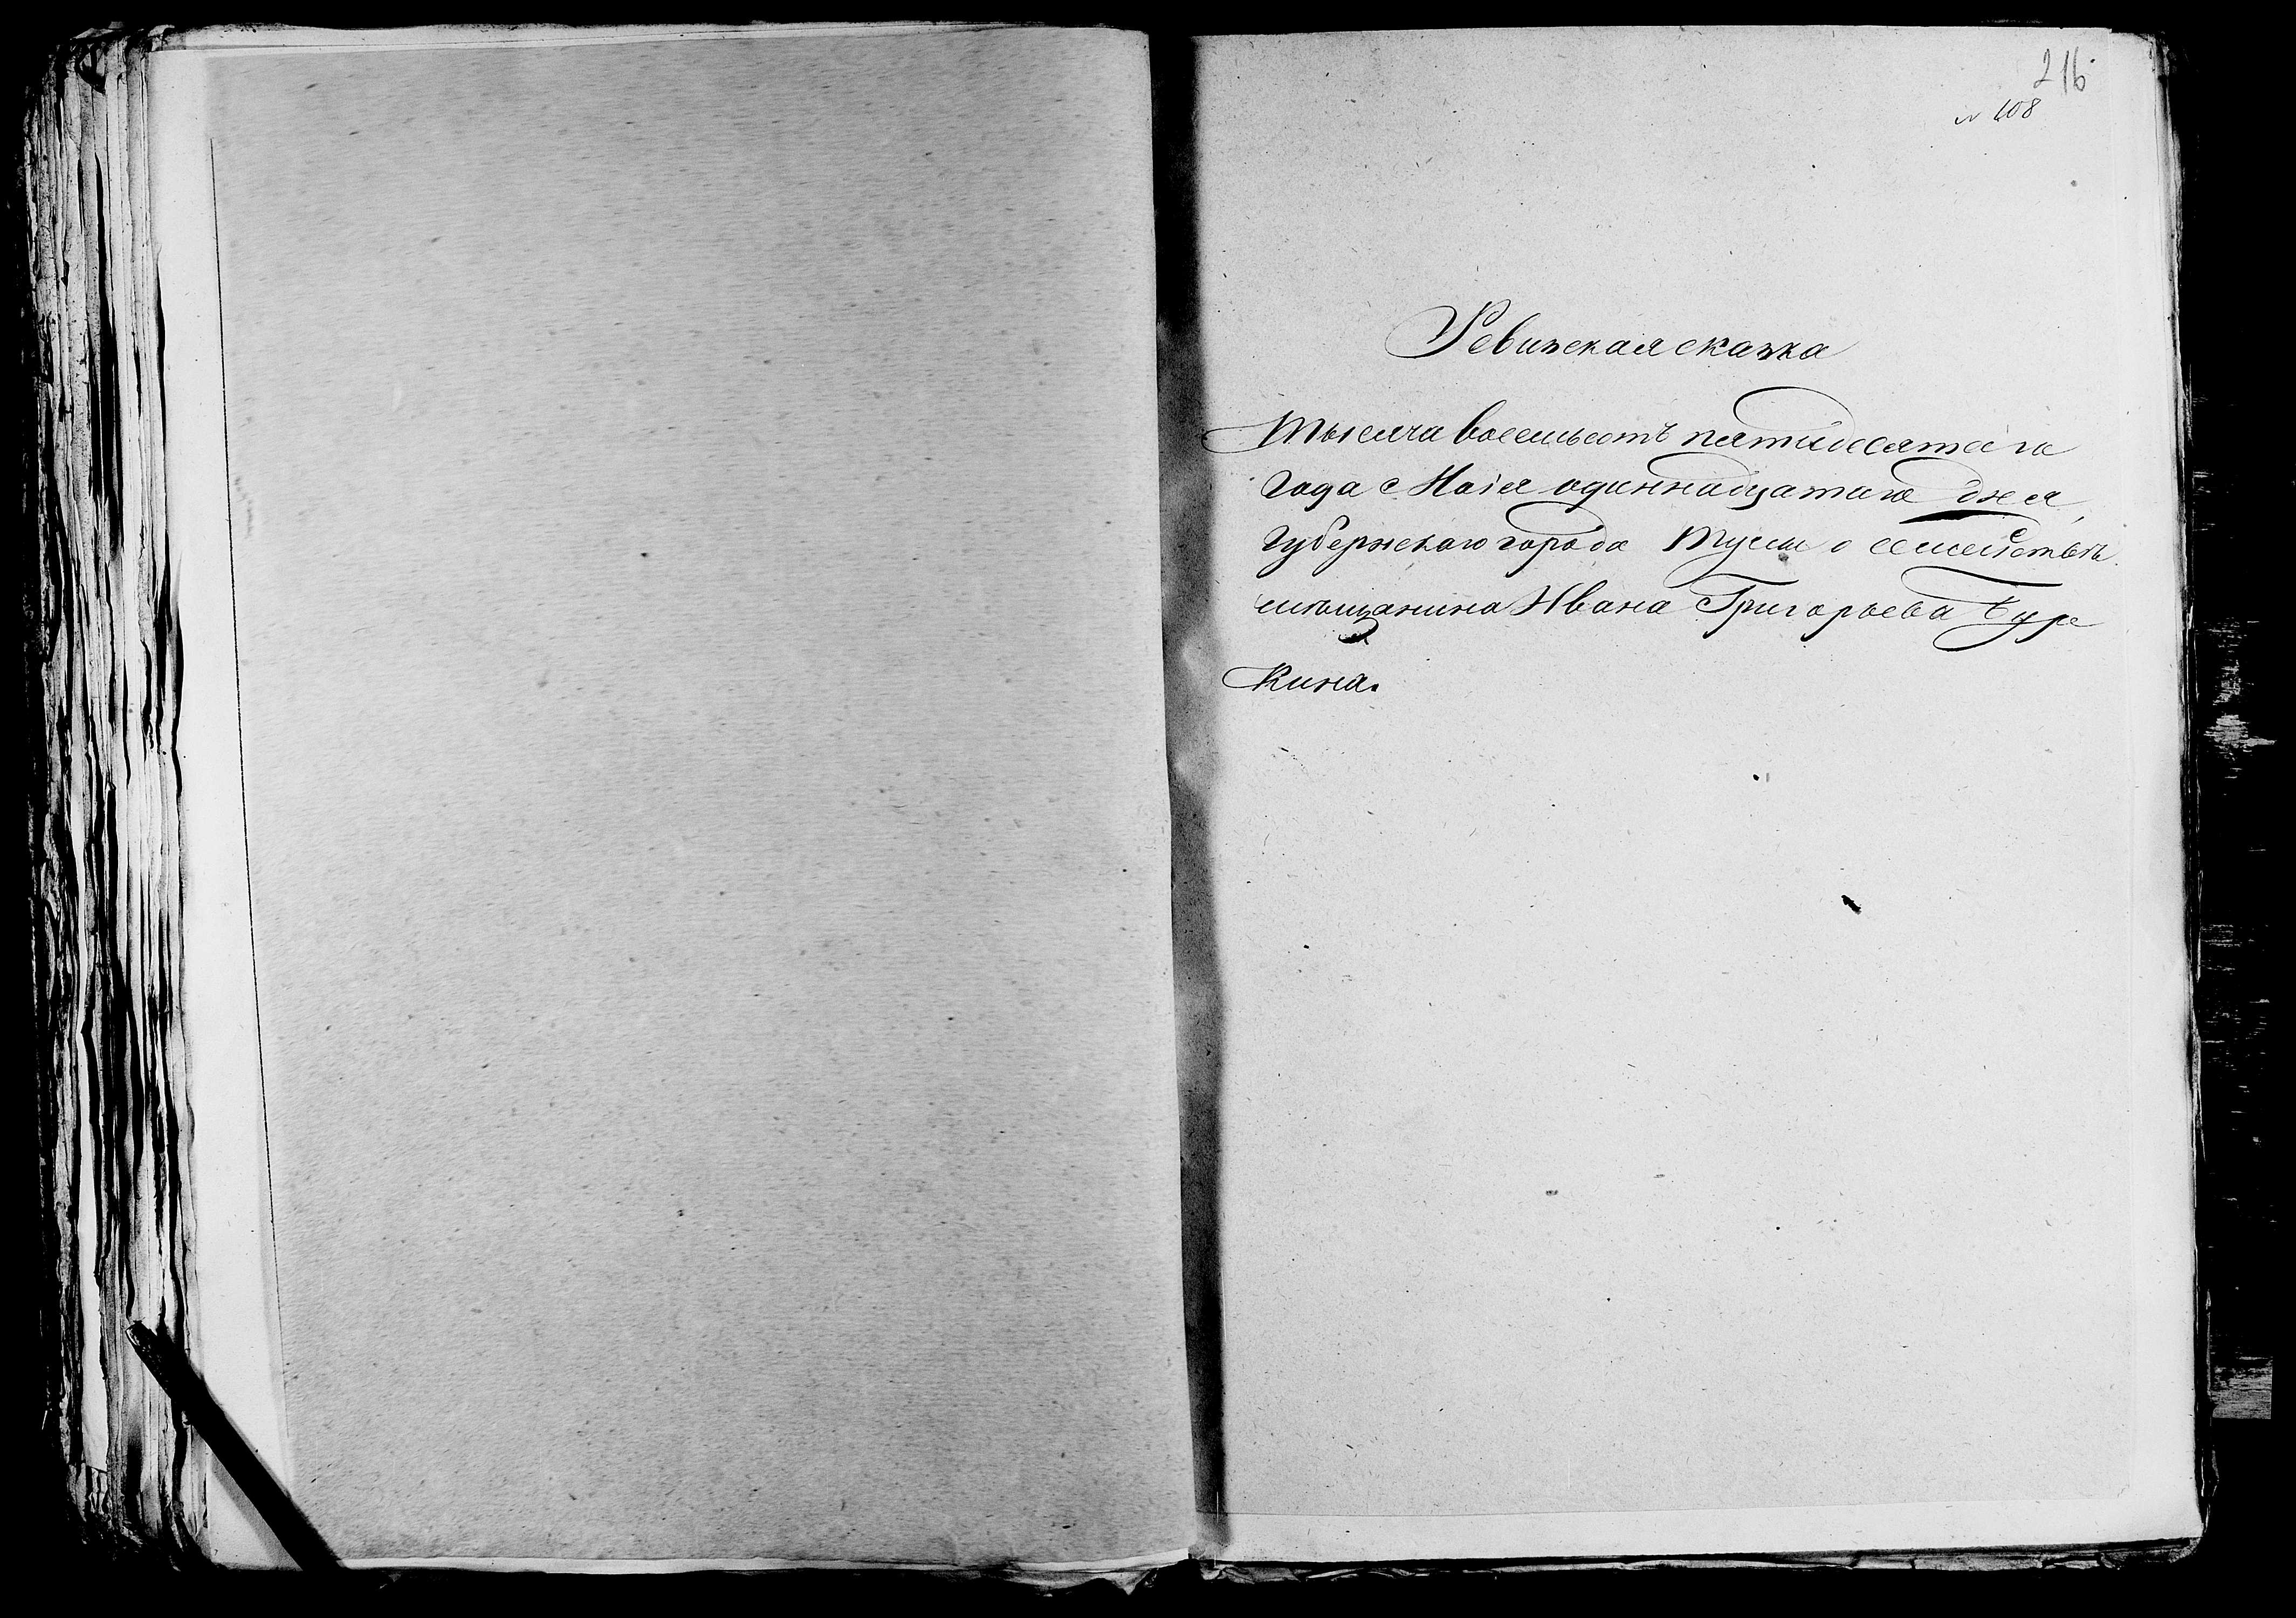 216
№ 108
Ревизская сказка
Тысяча восемьсотъ пятидесятаго
года с Маія одиннадцатаго дня,
Губернскаго города Тулы о семействѣ
мѣщанина Ивана Григорьева Буре
кина.